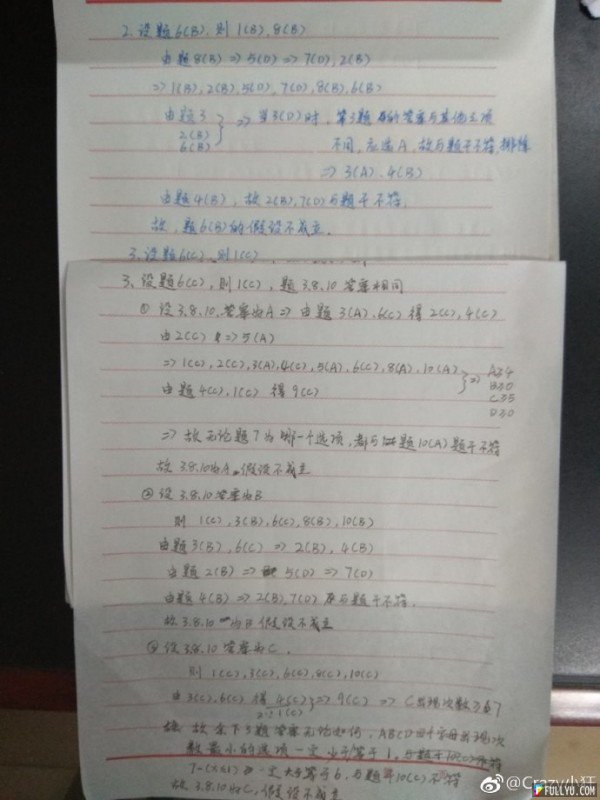 2. 设题6(B), 则1(B), 8(B)
由题8(B) => 5(D) => 7(D), 2(B)
=> 1(B), 2(B), 5(D), 7(D), 8(B), 6(B)
由题3
2(B)
6(B)
} => 当3(D)时, 第3题的答案与其他三项
不同, 应选A, 故与题干不符, 排除
=> 3(A), 4(B)
由题4(B), 故2(B), 7(D)与题干不符.
故, 题6(B)的假设不成立.
3. 设题6(C), 则1(C)
3. 设题6(C), 则1(C), 题3.8.10 答案相同
① 设3.8.10.答案为A => 由题3(A), 6(C) 得 2(C), 4(C)
由2(C) => 5(A)
=> 1(C), 2(C), 3(A), 4(C), 5(A), 6(C), 8(A), 10(A)
由题4(C), 1(C) 得 9(C)
} =>
A≥4
B≥0
C≥5
D≥0
=> 故无论题7为哪一个选项, 都与题10(A)题干不符
故3.8.10为A, 假设不成立
② 设3.8.10答案为B
则 1(C), 3(B), 6(C), 8(B), 10(B)
由题3(B), 6(C) => 2(B), 4(B)
由题2(B) => 5(D) => 7(D)
由题4(B) => 2(B), 7(D) 与题干不符.
故3.8.10 为B 假设不成立
③ 设3.8.10答案为C.
则 1(C), 3(C), 6(C), 8(C), 10(C)
由3(C), 6(C) 得 4(C) => 9(C) => C出现次数≥7
1(C)
故余下3题答案无论如何, ABCD四个字母出现次
数最小的选项一定小于等于1, 与题干10(C)不符
7-(x≤1) => 一定大于等于6, 与题干10(C)不符
故3.8.10为C, 假设不成立
@Crazy小狂
FULLYU.COM